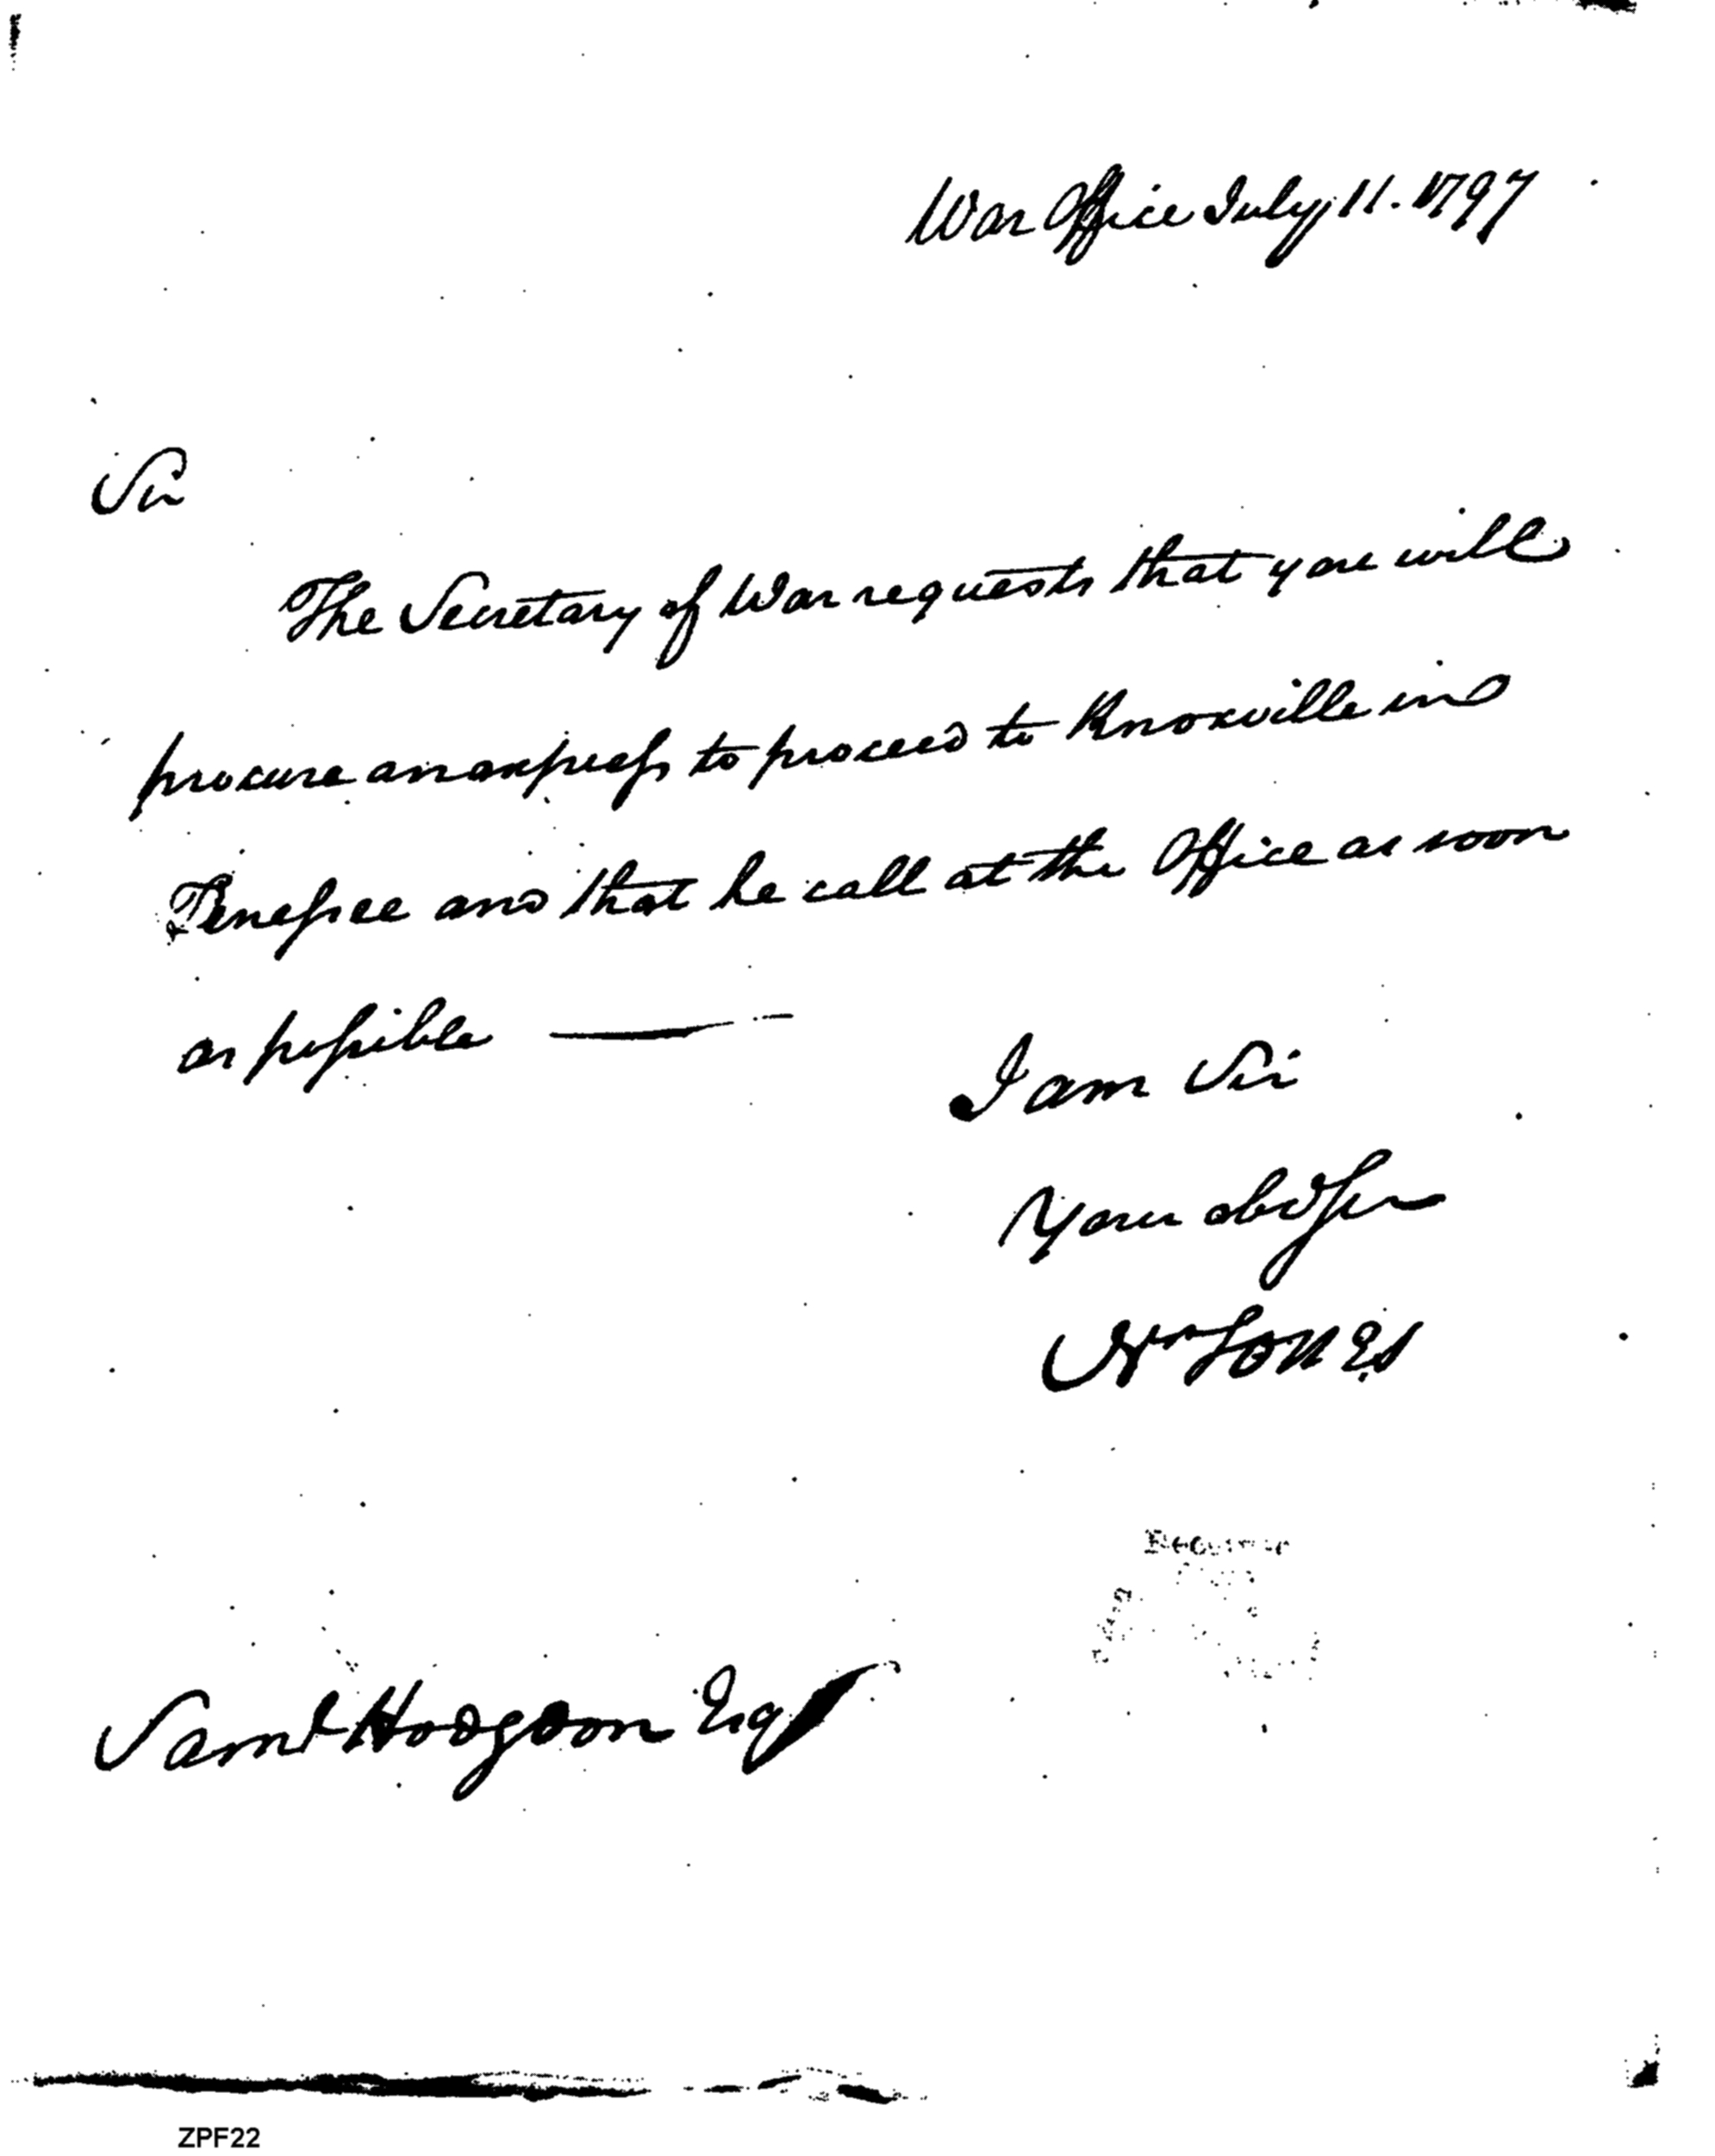 War Office July 11. 1797
Sir
The Secretary of War requests that you will
procure an express to proceed to Knoxville in
Tenessee and that he call at the Office as soon
as possible ———
I am Sir
Your obd Ser
Jones
Saml Hodgdon Esqr
ZPF22